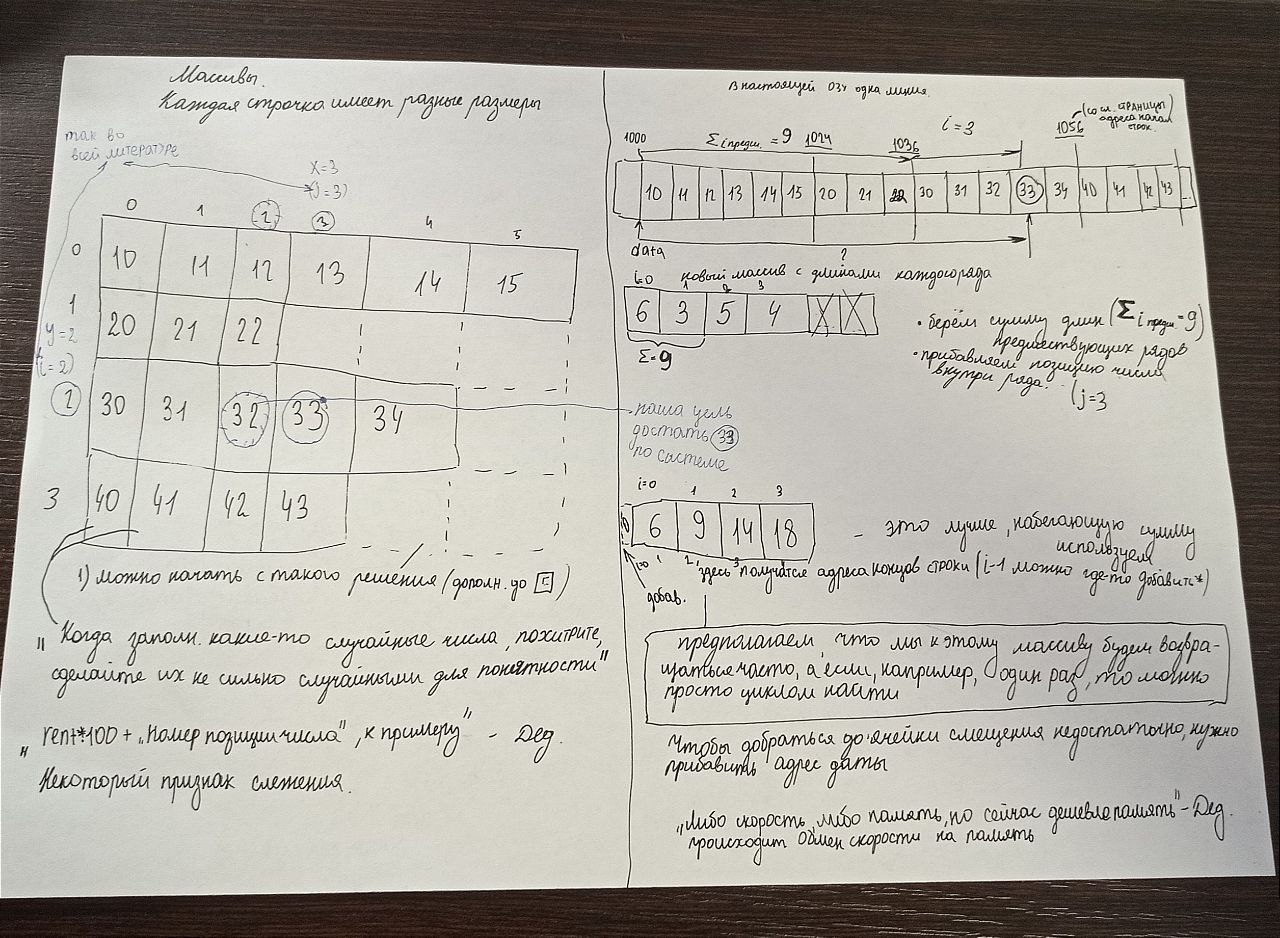 Массивы.
Каждая строчка имеет разные размеры
так во
всей литературе
x=3
(j=3)
0 1 2 3 4 5
0 10 11 12 13 14 15
1 20 21 22
y=2
(i=2)
2 30 31 32 33 34
3 40 41 42 43
1) можно начать с такого решения (дополн. до □)
"Когда заполн. какие-то случайные числа, похитрите,
сделайте их не сильно случайными для понятности"
"rent*100 + "Номер позиции числа", к примеру" - Дед.
Некоторый признак слежения.
В настоящей ОЗУ одна линия.
1000 Σ i предш. = 9 1024 1036 i=3 1056
(со сл. страницы
адреса начал
строк.
10 11 12 13 14 15 20 21 22 30 31 32 33 34 40 41 42 43 ...
data ?
i=0 новый массив с длинами каждого ряда
1 2 3
6 3 5 4 X X
Σ=9
• берём сумму длин (Σ i предш. = 9)
предшествующих рядов
• прибавляем позицию числа
внутри ряда.
(j=3
наша цель
достать 33
по системе
i=0 1 2 3
0 6 9 14 18
- это лучше, набегающую сумму
используем
i=0 1 2 3
здесь получатся адреса концов строки (i-1 можно где-то добавить*)
добав.
предполагаем, что мы к этому массиву будем возвра-
щаться часто, а если, например, один раз, то можно
просто циклом найти
Чтобы добраться до ячейки смещения недостаточно, нужно
прибавить адрес даты
"Либо скорость, либо память, но сейчас дешевле память" - Дед.
происходит обмен скорости на память